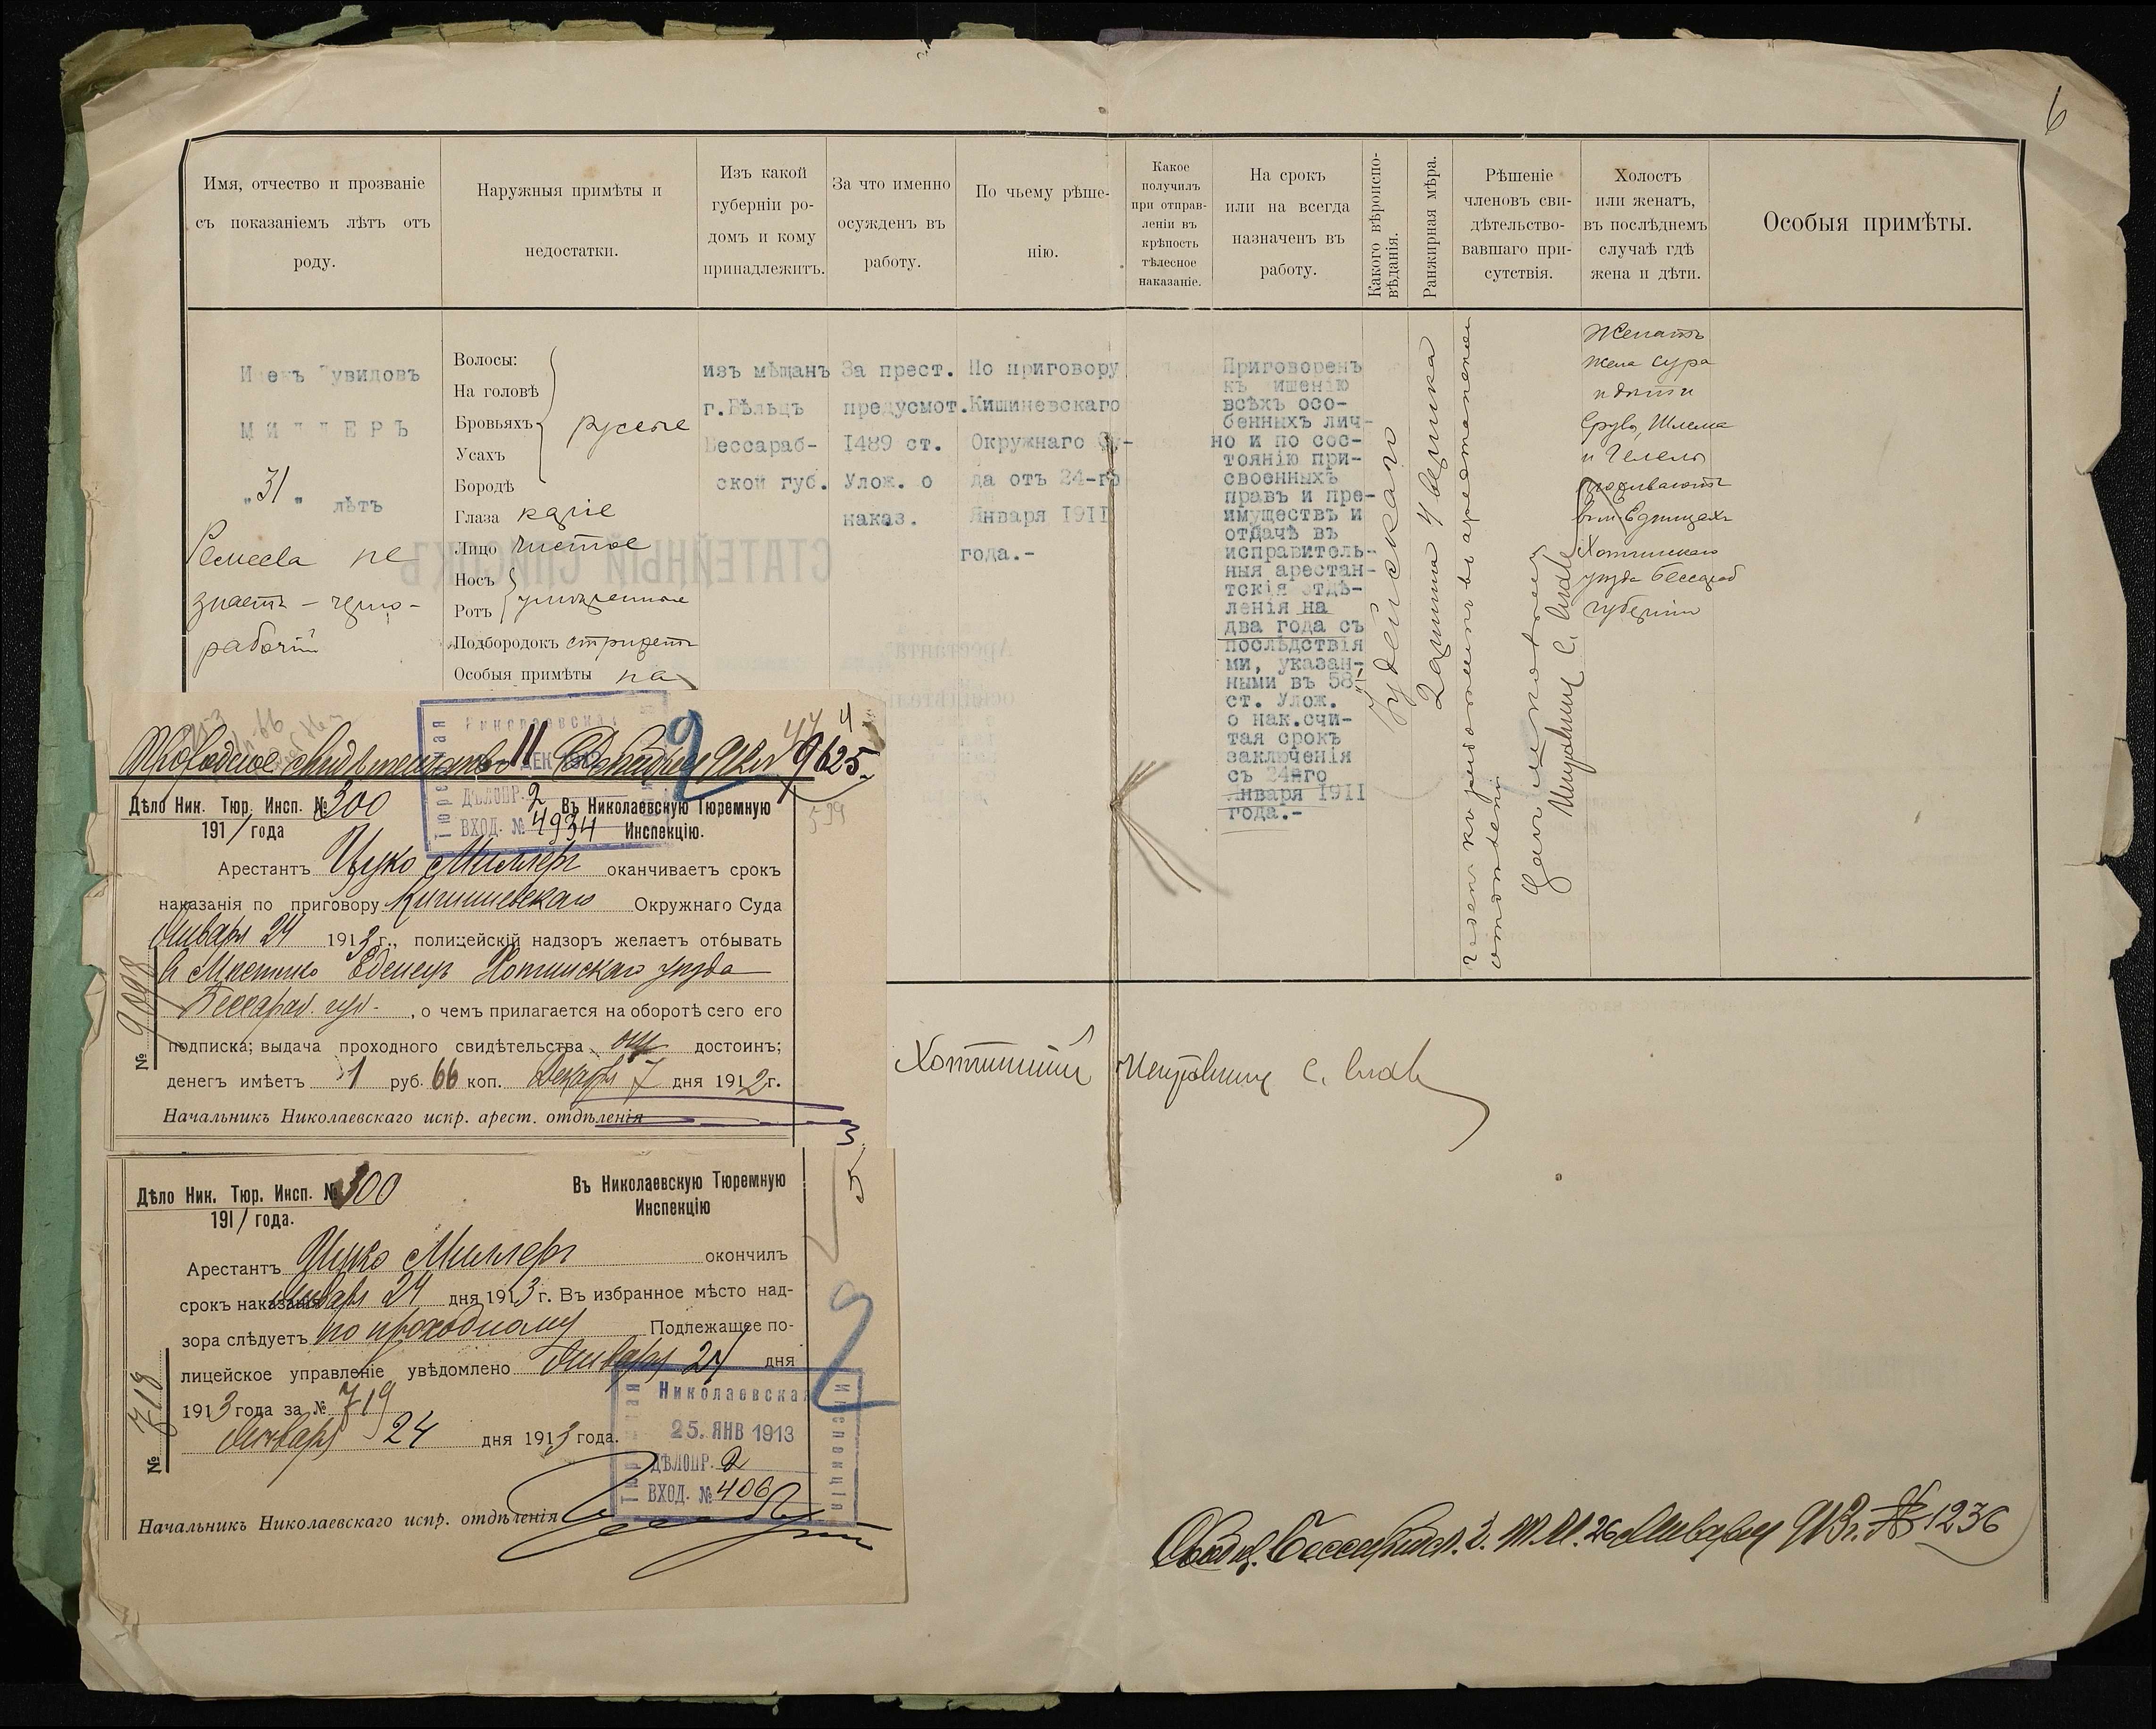 6
Имя, отчество и прозваніе
съ показаніемъ лѣтъ отъ
роду.
Наружныя примѣты и
недостатки.
Изъ какой
губерніи ро-
домъ и кому
принадлежитъ.
За что именно
осужденъ въ
работу.
По чьему рѣше-
нію.
Какое
получилъ
при отправ-
леніи въ
крѣпость
тѣлесное
наказаніе.
На срокъ
или на всегда
назначенъ въ
работу.
Какого вѣроиспо-
вѣданія.
Ранжирная мѣра.
Рѣшеніе
членовъ сви-
дѣтельство-
вавшаго при-
сутствія.
Холостъ
или женатъ,
въ послѣднемъ
случаѣ гдѣ
жена и дѣти.
Особыя примѣты.
МИЛЛЕРЪ
„31" лѣтъ
Ремесла не
знаетъ - черно-
рабочій
Волосы:
На головѣ
Бровьяхъ русые
Усахъ
Бородѣ
Глаза карие
Лицо чистое
Носъ
Ротъ умѣренные
Подбородокъ стрижетъ
Особыя примѣты на
изъ мѣщанъ
г.Бѣльцъ
Бессараб-
ской губ.
За прест.
предусмот.
1489 ст.
Улож. о
наказ.
По приговору
Кишиневскаго
Окружнаго Су-
да отъ 24-го
Января 1911
года.-
Приговоренъ
къ лишенію
всѣхъ осо-
бенныхъ лич-
но и по сос-
тоянію при-
своенныхъ
правъ и пре-
имуществъ и
отдачѣ въ
исправитель-
ныя арестан-
тскія отдѣ-
ленія на
два года съ
послѣдствія
ми, указан-
ными въ 58-
ст. Улож.
о нак.счи-
тая срокъ
заключенія
съ 24-го
Января 1911
года.-
Іудейскаго
2 аршина 4 вершка
Женатъ
жена Сура
и дѣти
Срулъ, Шлема
и
проживаютъ
въ м. Единцахъ
Хотинскаго
уѣзда Бессараб
губерніи
СТАТЕЙНЫЙ СПИСОКЪ
Хотинскій Исправникъ
Проходное свидѣтельство 11 Декабря 912 г 9625.
Николаевская
Тюремная
ДЕК 1912
ДѢЛОПР. 2
ВХОД. № 4934
2
47
4
Дѣло Ник. Тюр. Инсп. № 300
1911 года
Въ Николаевскую Тюремную
Инспекцію.
Арестантъ Ицко Миллеръ оканчиваетъ срокъ
наказанія по приговору Кишиневскаго Окружнаго Суда
Января 24 1913 г., полицейскій надзоръ желаетъ отбывать
въ Мѣстечко Единецъ Хотинскаго уѣзда
Бессараб. губ. , о чемъ прилагается на оборотѣ сего его
подписка; выдача проходного свидѣтельства достоинъ;
денегъ имѣетъ 1 руб. 66 коп. Декабря 7 дня 1912 г.
Начальникъ Николаевскаго испр. арест. отдѣленія
№ 9098
3
5
Дѣло Ник. Тюр. Инсп. № 300
1911 года.
Въ Николаевскую Тюремную
Инспекцію
Арестантъ Ицко Миллеръ окончилъ
срокъ наказанія Января 24 дня 1913 г. Въ избранное мѣсто над-
зора слѣдуетъ по проходному Подлежащее по-
лицейское управленіе увѣдомлено Января 24 дня
1913 года за № 719
Января 24 дня 1913 года.
№ 718
2
Николаевская
Тюремная
Инспекція
25. ЯНВ 1913
ДѢЛОПР. 2
ВХОД. № 406
Начальникъ Николаевскаго испр. отдѣленія
26 Января 913 г. № 1236